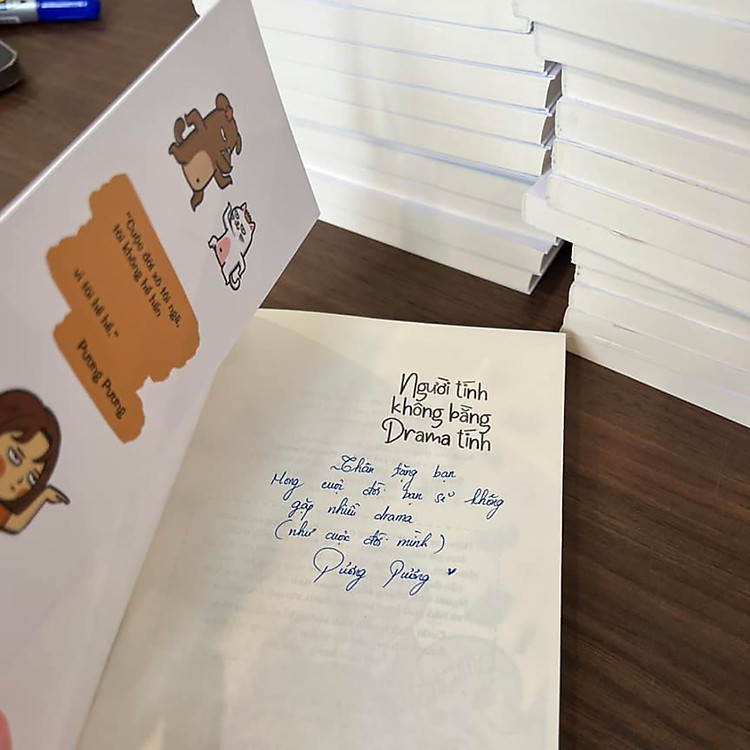 "Cuộc đời xô tôi ngã,
tôi không hề hấn,
vì tôi hề hề."
Pương Pương
Người tính
không bằng
Drama tính
Thân tặng bạn
Mong cuộc đời bạn sẽ không
gặp nhiều drama
(như cuộc đời mình)
Pương Pương